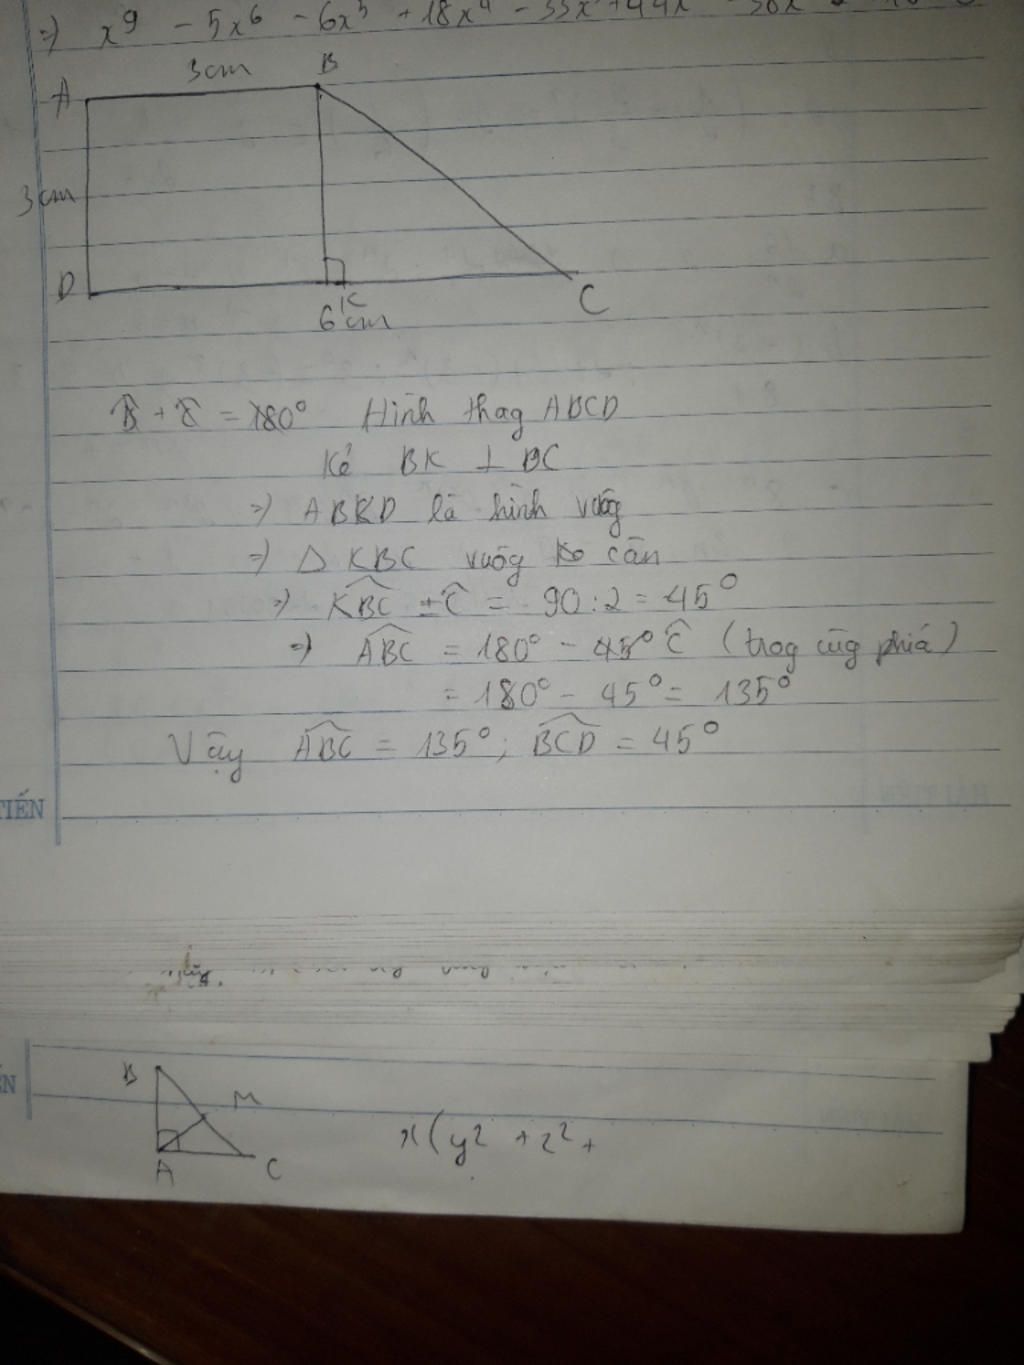 =) x⁹ - 5x⁶ - 6x⁵ + 18x⁴ - 33x + 44x
3cm
A B
3cm
D K C
6cm
B̂ + Ĉ = 180° Hình thag ABCD
Kẻ BK ⊥ DC
=) ABKD là hình vuôg
=) Δ KBC vuôg cân
=) K̂BC = Ĉ = 90 : 2 = 45°
=) ÂBC = 180° - Ĉ (trog cùg phía)
= 180° - 45° = 135°
Vậy ÂBC = 135° ; B̂CD = 45°
TIẾN
ẾN
B
M
A C
x(y² + z² +